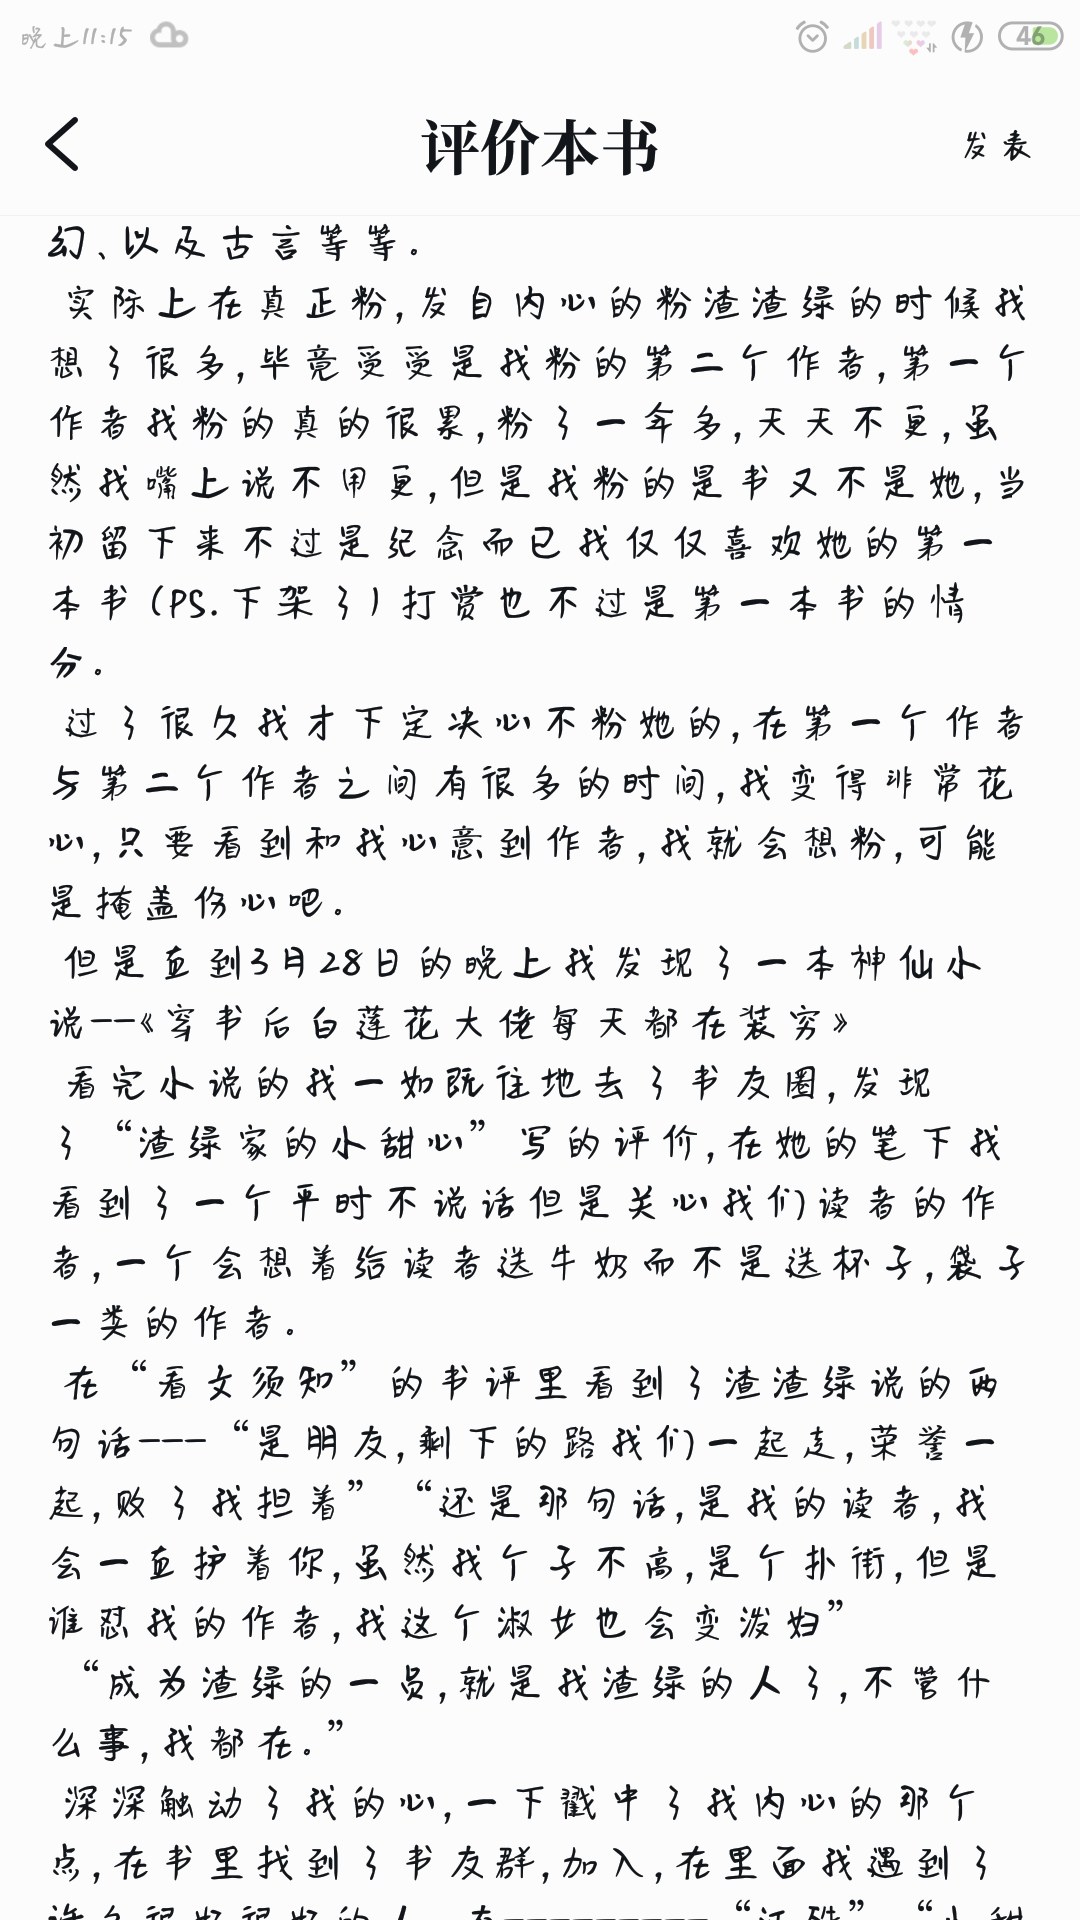 晚上11:15
46
评价本书
发表
幻、以及古言等等。
实际上在真正粉,发自内心的粉渣渣绿的时候我
想了很多,毕竟受受是我粉的第二个作者,第一个
作者我粉的真的很累,粉了一年多,天天不更,虽
然我嘴上说不用更,但是我粉的是书又不是她,当
初留下来不过是纪念而已我仅仅喜欢她的第一
本书(PS.下架了)打赏也不过是第一本书的情
分。
过了很久我才下定决心不粉她的,在第一个作者
与第二个作者之间有很多的时间,我变得非常花
心,只要看到和我心意到作者,我就会想粉,可能
是掩盖伤心吧。
但是直到3月28日的晚上我发现了一本神仙小
说--《穿书后白莲花大佬每天都在装穷》
看完小说的我一如既往地去了书友圈,发现
了“渣绿家的小甜心”写的评价,在她的笔下我
看到了一个平时不说话但是关心我们读者的作
者,一个会想着给读者送牛奶而不是送杯子,袋子
一类的作者。
在“看文须知”的书评里看到了渣渣绿说的两
句话---“是朋友,剩下的路我们一起走,荣誉一
起,败了我担着” “还是那句话,是我的读者,我
会一直护着你,虽然我个子不高,是个扑街,但是
谁怼我的作者,我这个淑女也会变泼妇”
“成为渣绿的一员,就是我渣绿的人了,不管什
么事,我都在。”
深深触动了我的心,一下戳中了我内心的那个
点,在书里找到了书友群,加入,在里面我遇到了